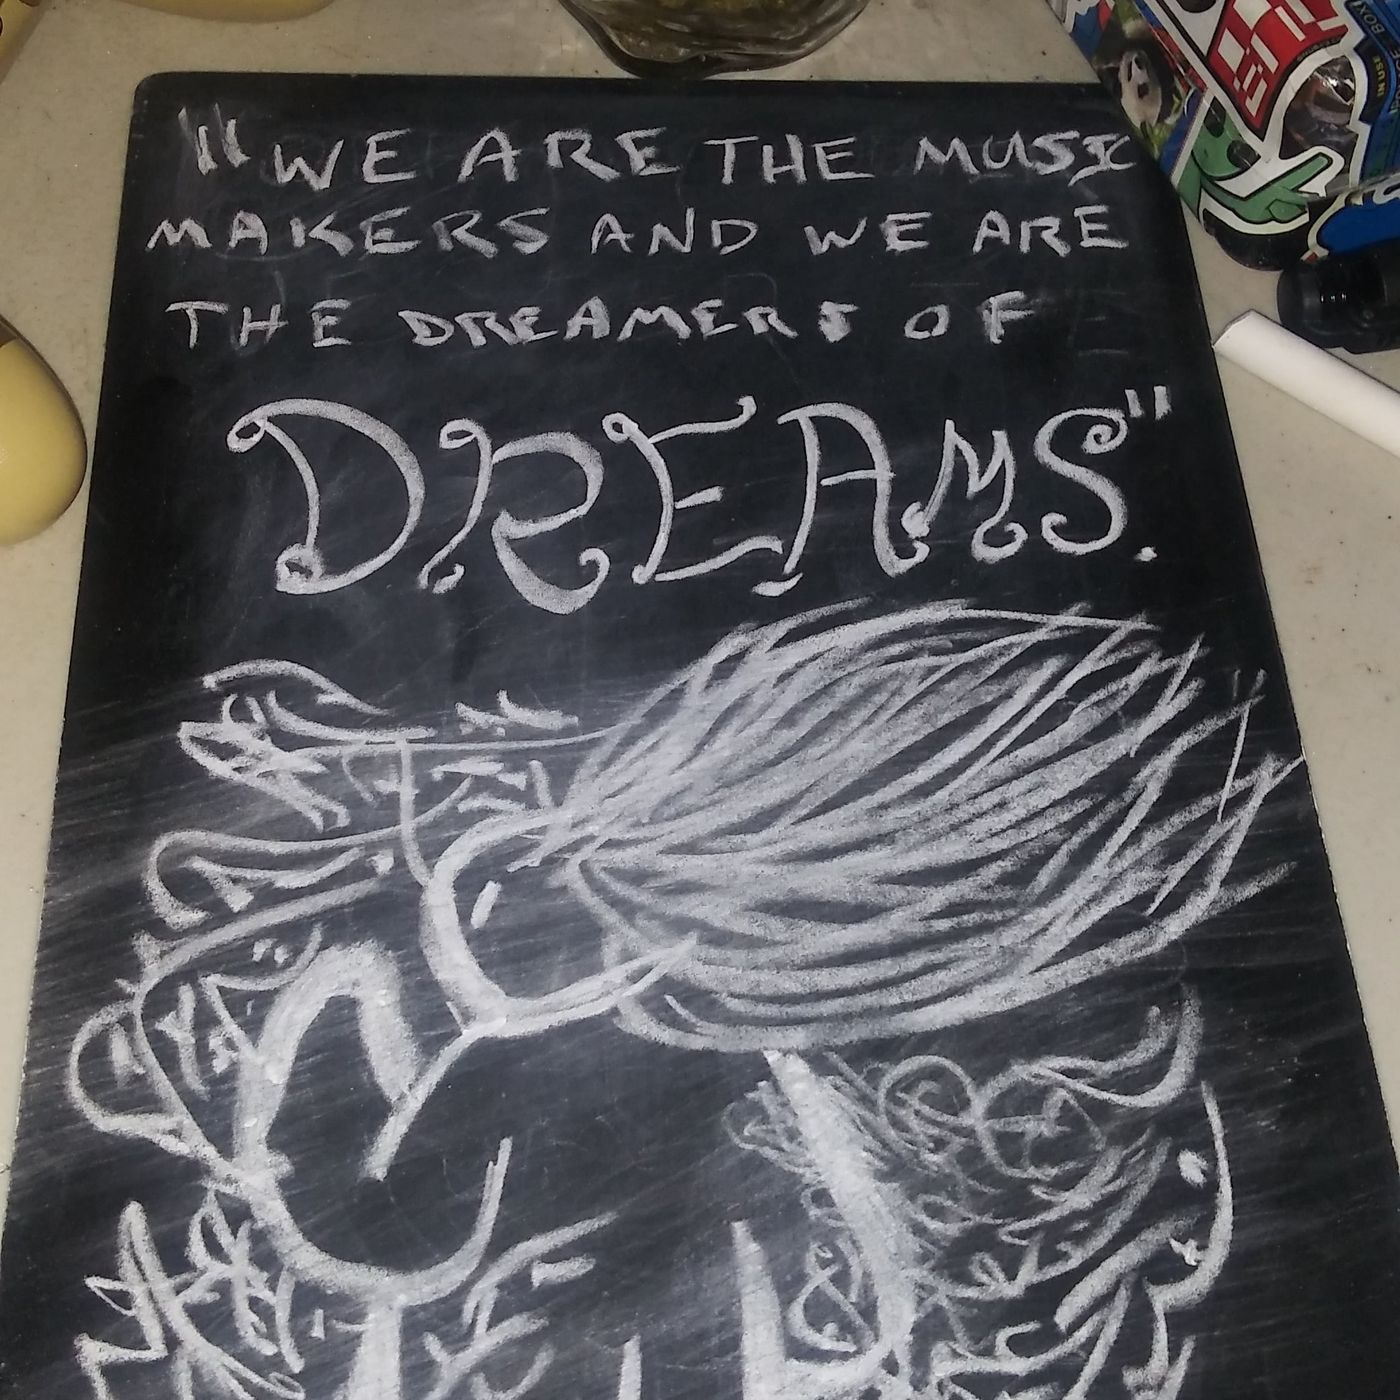 "WE ARE THE MUSIC
MAKERS AND WE ARE
THE DREAMERS OF
DREAMS".